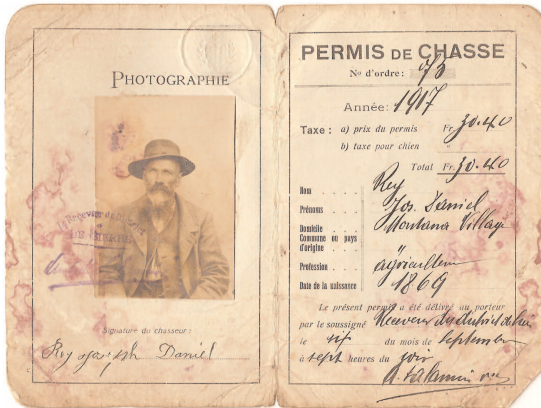 PHOTOGRAPHIE
Le Receveur du District
DE SIERRE
Signature du chasseur:
Rey Joseph Daniel
PERMIS DE CHASSE
No d'ordre: 73
Année: 1917
Taxe: a) prix du permis Fr. 30.40
b) taxe pour chien "
Total Fr. 30.40
Nom Rey
Prénoms Jos. Daniel
Domicile Montana Village
Commune ou pays d'origine "
Profession agriculteur
Date de la naissance 1869
Le présent permis a été délivré au porteur
par le soussigné Receveur du district de
le sept du mois de septembre
à sept heures du soir